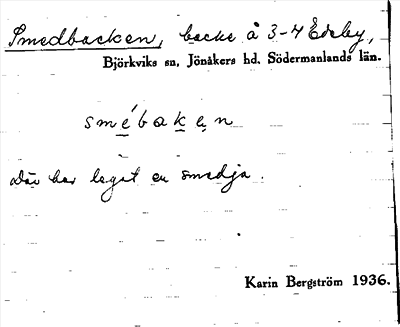 Smedbacken, backe å 3-4 Edeby,
Björkviks sn, Jönåkers hd. Södermanlands län.
smébaken
Där har legat en smedja.
Karin Bergström 1936.